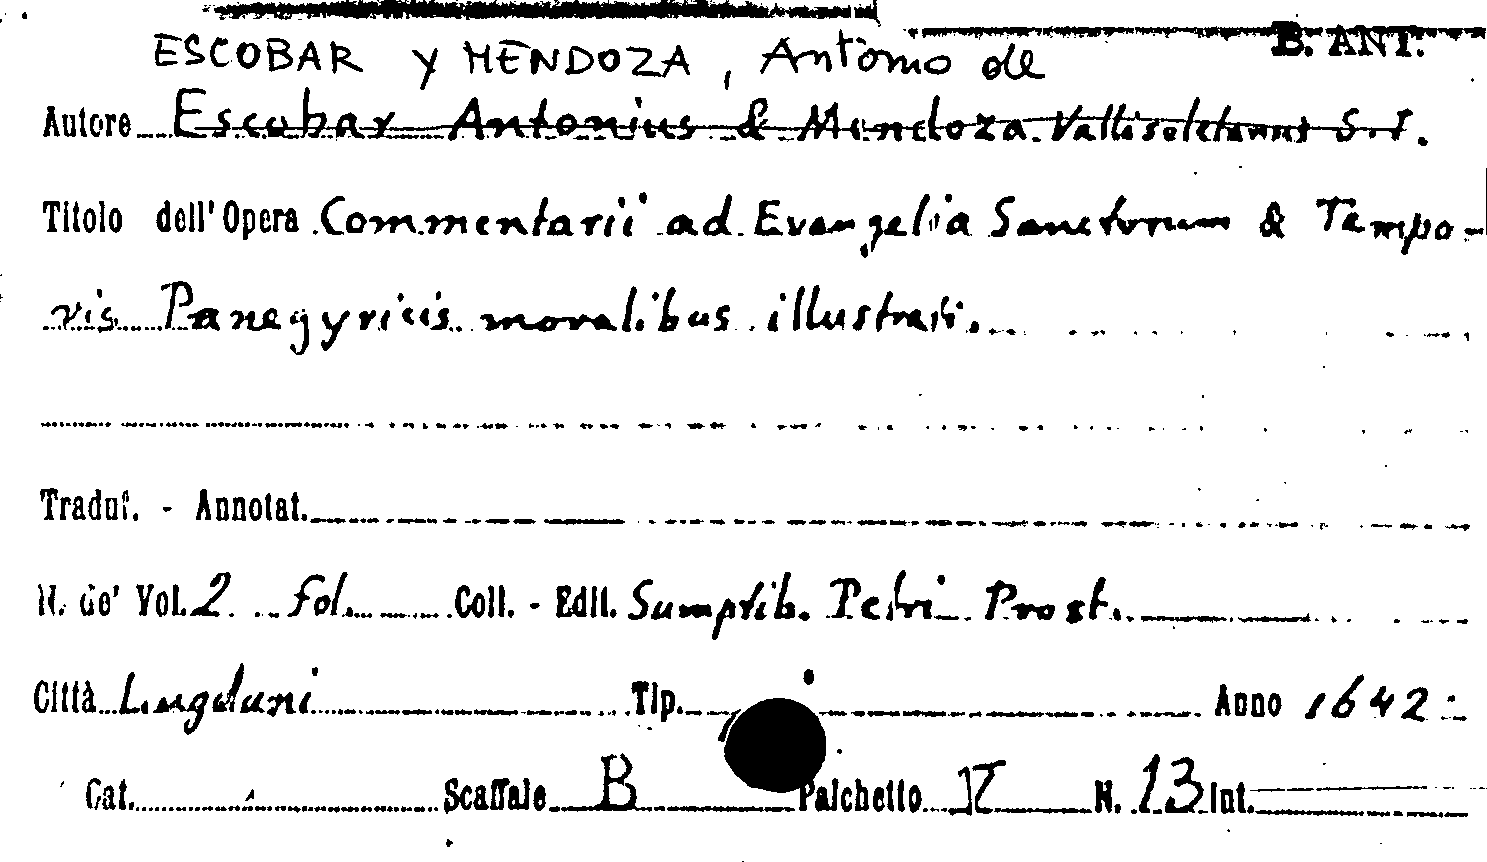 B. ANT.
ESCOBAR y MENDOZA, Antonio de
Autore Escobar Antonius & Mendoza Vallisoletanus S. I.
Titolo dell' Opera Commentarii ad Evangelia Sanctorum & Tempo-
ris Panegyricis moralibus illustrati.
Traduf. - Annotat.
N. de' Vol. 2 fol. Coll. - Edit. Sumptib. Petri Prost.
Città Lugduni Tip. Anno 1642
Cat. Scaffale B Palchetto V N. 13 Int.